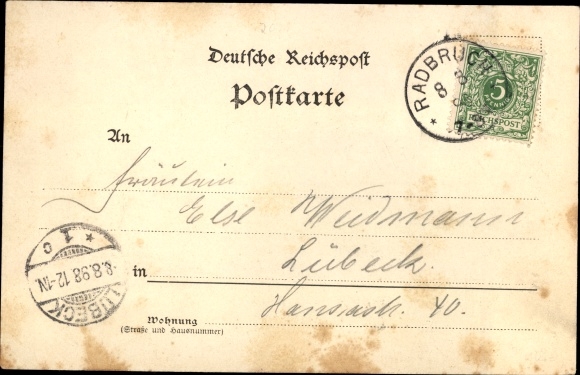 Deutsche Reichspost
Postkarte
RADBRUCH
8 8
5
PFENNIG
REICHSPOST
An
Fräulein
Else Weidmann
in Lübeck.
Hansastr. 40.
Wohnung
(Straße und Hausnummer)
LÜBECK
8.8.98.12-1N.
* 1 c